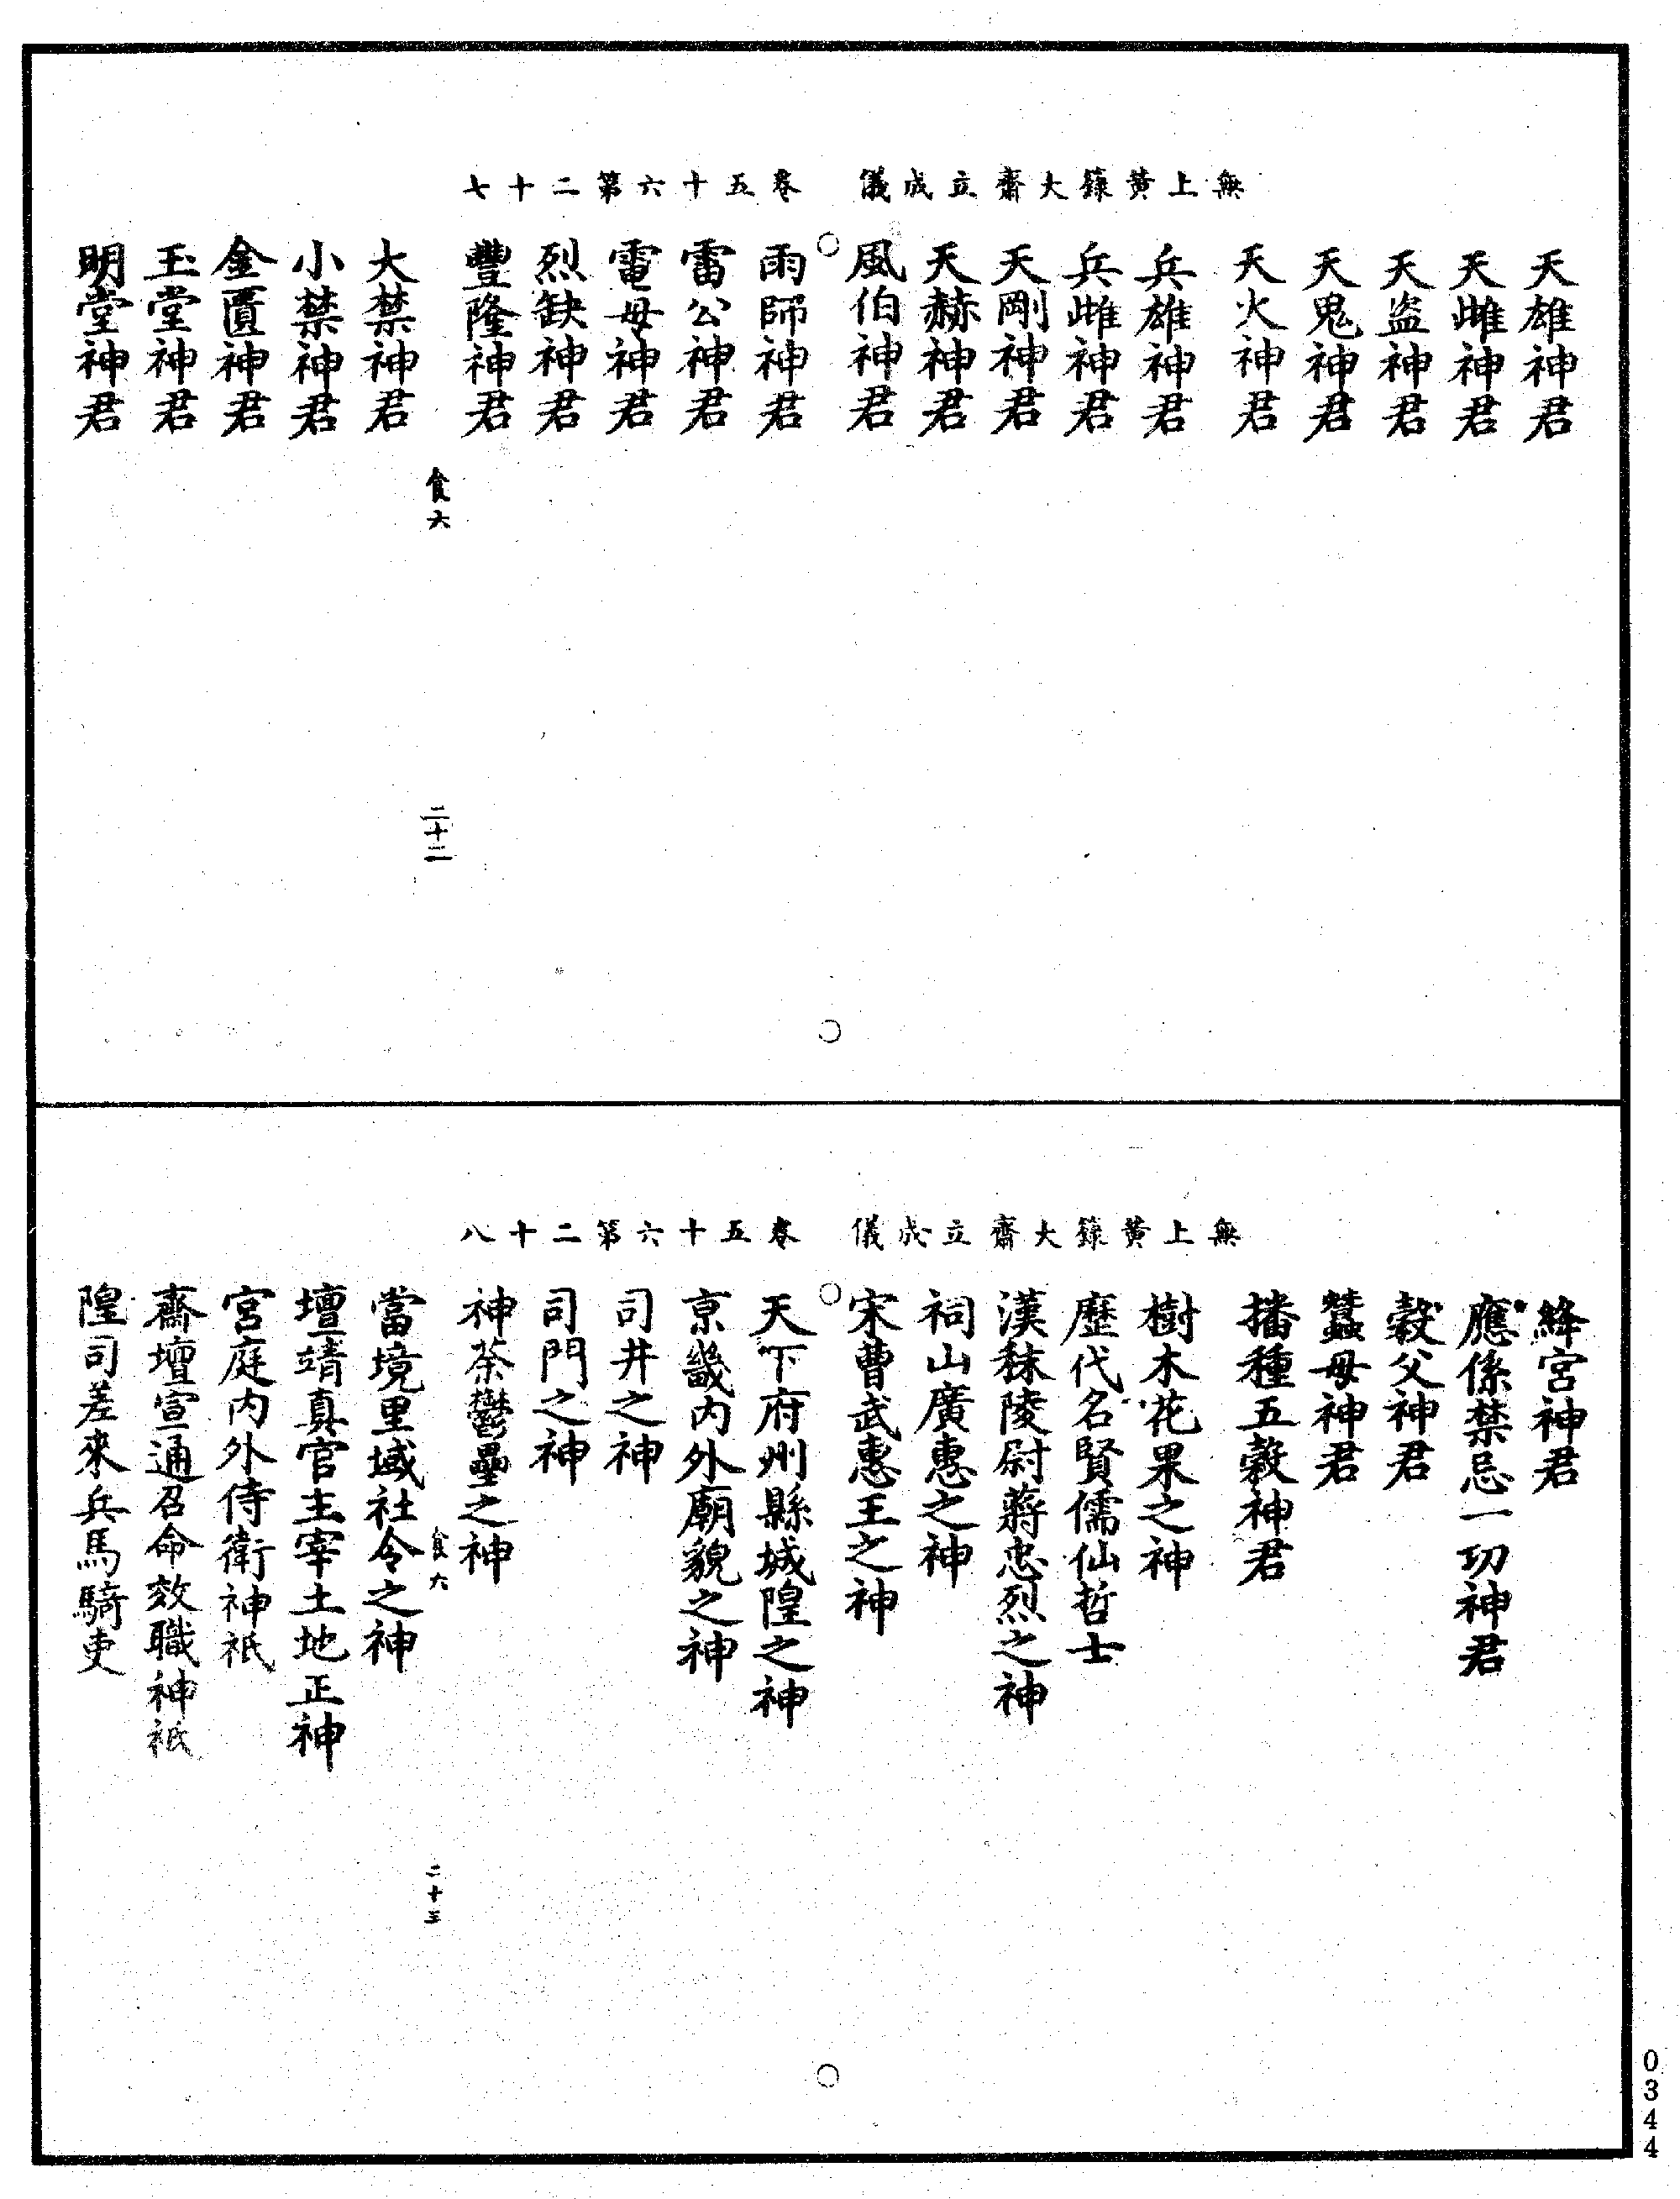 無上黃籙大齋立成儀　卷五十六第二十七
天雄神君
天雌神君
天盗神君
天鬼神君
天火神君
兵雄神君
兵雌神君
天剛神君
天赫神君
風伯神君
雨師神君
雷公神君
電母神君
烈缺神君
豐隆神君
食六　二十二
大禁神君
小禁神君
金匱神君
玉堂神君
明堂神君
無上黃籙大齋立成儀　卷五十六第二十八
絳宮神君
應係禁忌一切神君
穀父神君
蠶母神君
播種五穀神君
樹木花果之神
歷代名賢儒仙哲士
漢秣陵尉蔣忠烈之神
祠山廣惠之神
宋曹武惠王之神
天下府州縣城隍之神
京畿內外廟貌之神
司井之神
司門之神
神荼鬱壘之神
食六　二十三
當境里域社令之神
壇靖真官主宰土地正神
宮庭內外侍衛神祇
齋壇宣通召命效職神祇
隍司差來兵馬騎吏
0344